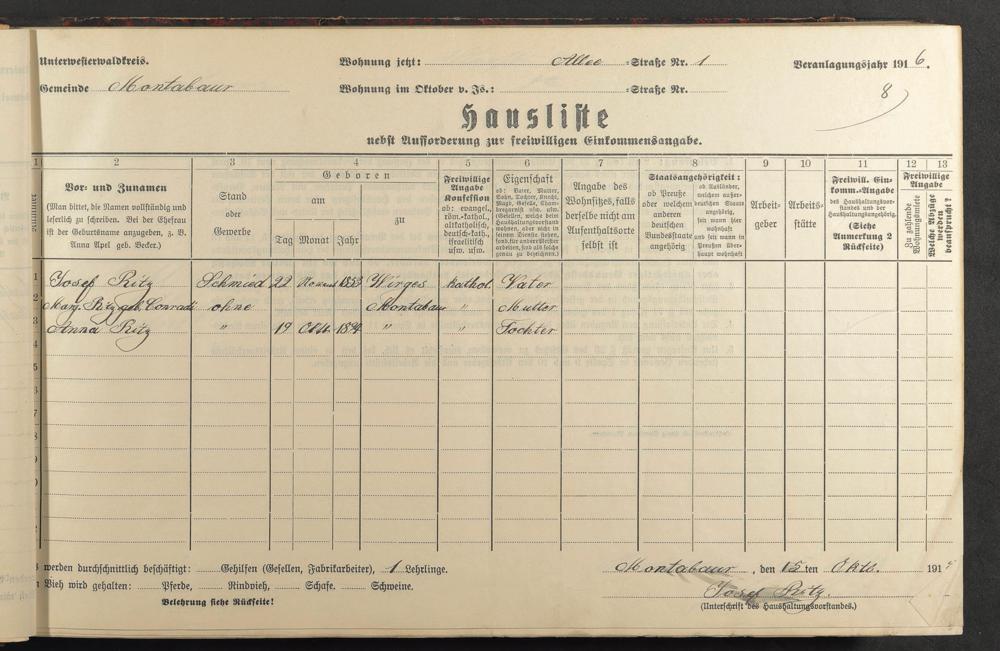 Unterwesterwaldkreis.
Wohnung jetzt: Allee =Straße Nr. 1
Veranlagungsjahr 1916.
Gemeinde Montabaur
Wohnung im Oktober v. Js.: =Straße Nr.
8
Hausliste
nebst Aufforderung zur freiwilligen Einkommensangabe.
1 2 3 4 5 6 7 8 9 10 11 12 13
Nummer
Vor- und Zunamen
(Man bittet, die Namen vollständig und
leserlich zu schreiben. Bei der Ehefrau
ist der Geburtsname anzugeben, z. B.
Anna Apel geb. Becker.)
Stand
oder
Gewerbe
Geboren
am
zu
Tag Monat Jahr
Freiwillige
Angabe
Konfession
ob: evangel.,
röm.-kathol.,
altkatholisch,
deutsch-kath.,
israelitisch
usw. usw.
Eigenschaft
ob: Vater, Mutter,
Sohn, Tochter, Knecht,
Magd, Geselle,
usw. usw.
(Gesellen, welche beim
Haushaltungsvorstand
wohnen, aber nicht in
seinem Dienste stehen,
sond. für andere Meister
arbeiten, sind als solche
genau zu bezeichnen.)
Angabe des
Wohnsitzes, falls
derselbe nicht am
Aufenthaltsorte
selbst ist
Staatsangehörigkeit:
ob Preuße
oder welchem
anderen
deutschen
Bundesstaate
angehörig
ob Ausländer,
welchem außer-
deutschen Staate
angehörig,
seit wann hier
wohnhaft
und seit wann in
Preußen über-
haupt wohnhaft
Arbeit-
geber
Arbeits-
stätte
Freiwill. Ein-
komm.-Angabe
des Haushaltungsvor-
standes und der
Haushaltungsangehörig.
(Siehe
Anmerkung 2
Rückseite)
Freiwillige
Angabe
Zu zahlende
Wohnungsmiete
Welche Abzüge
werden
beansprucht?
1 Josef Ritz Schmied 22 1853 Wirges kathol. Vater
2 Marg. Ritz geb. Conradi ohne Montabaur " Mutter
3 Anna Ritz " 19 Okt. 1894 " " Tochter
4
5
6
7
8
9
werden durchschnittlich beschäftigt: Gehilfen (Gesellen, Fabrikarbeiter), 1 Lehrlinge.
Vieh wird gehalten: Pferde, Rindvieh, Schafe. Schweine.
Belehrung siehe Rückseite!
Montabaur, den 15 ten Okt. 191
Josef Ritz.
(Unterschrift des Haushaltungsvorstandes.)